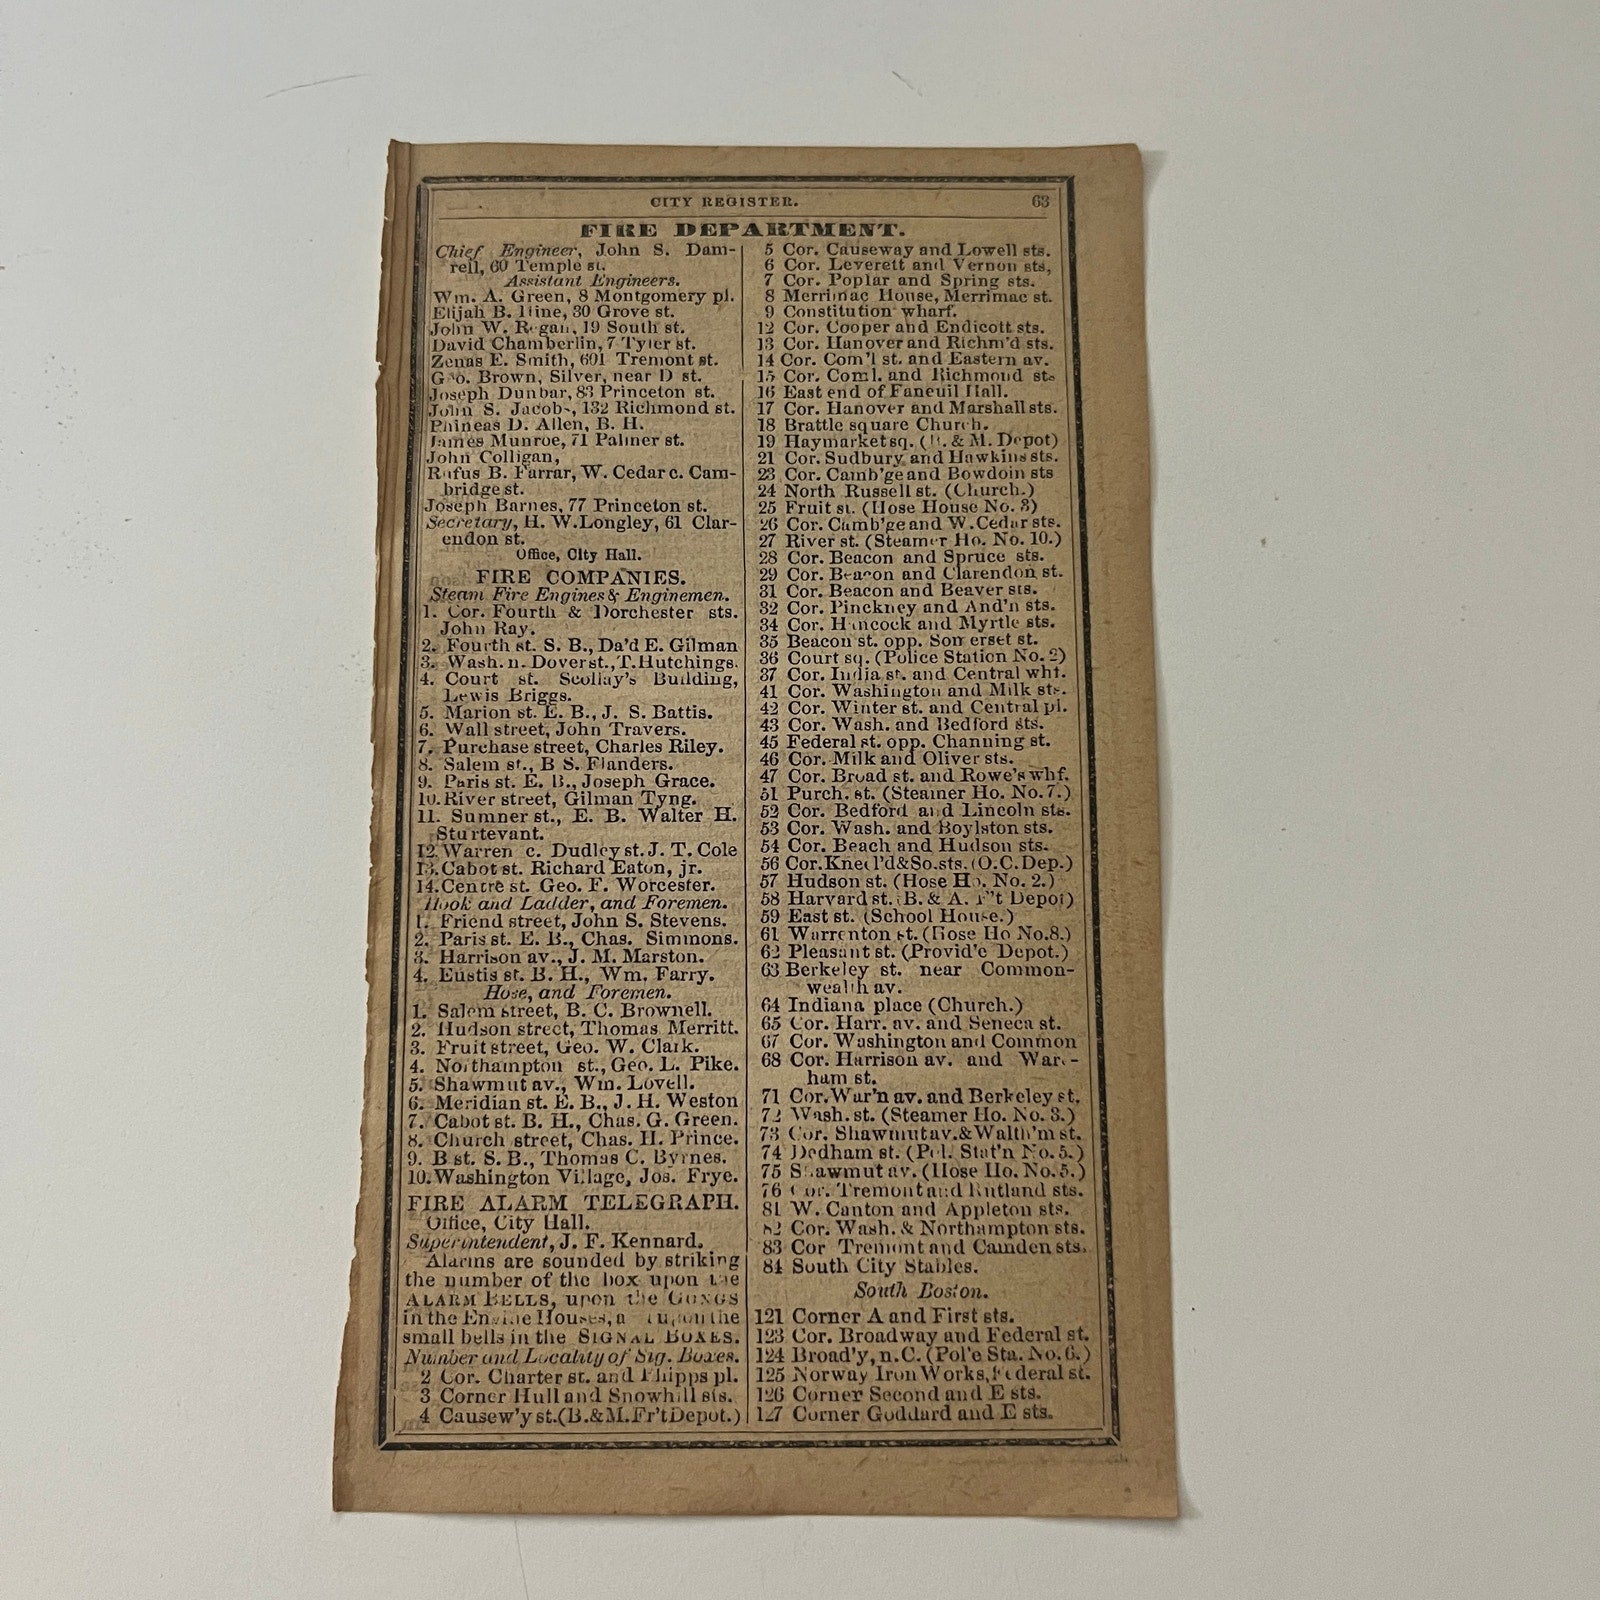 CITY REGISTER. 63
FIRE DEPARTMENT.
Chief Engineer, John S. Dam-
rell, 60 Temple st.
Assistant Engineers.
Wm. A. Green, 8 Montgomery pl.
Elijah B. Hine, 30 Grove st.
John W. Regan, 19 South st.
David Chamberlin, 7 Tyler st.
Zenas E. Smith, 601 Tremont st.
Geo. Brown, Silver, near D st.
Joseph Dunbar, 83 Princeton st.
John S. Jacobs, 132 Richmond st.
Phineas D. Allen, B. H.
James Munroe, 71 Palmer st.
John Colligan,
Rufus B. Farrar, W. Cedar c. Cam-
bridge st.
Joseph Barnes, 77 Princeton st.
Secretary, H. W. Longley, 61 Clar-
endon st.
Office, City Hall.
FIRE COMPANIES.
Steam Fire Engines & Enginemen.
1. Cor. Fourth & Dorchester sts.
John Ray.
2. Fourth st. S. B., Da'd E. Gilman
3. Wash. n. Dover st., T. Hutchings.
4. Court st. Scollay's Building,
Lewis Briggs.
5. Marion st. E. B., J. S. Battis.
6. Wall street, John Travers.
7. Purchase street, Charles Riley.
8. Salem st., B S. Flanders.
9. Paris st. E. B., Joseph Grace.
10. River street, Gilman Tyng.
11. Sumner st., E. B. Walter H.
Sturtevant.
12. Warren c. Dudley st. J. T. Cole
13. Cabot st. Richard Eaton, jr.
14. Centre st. Geo. F. Worcester.
Hook and Ladder, and Foremen.
1. Friend street, John S. Stevens.
2. Paris st. E. B., Chas. Simmons.
3. Harrison av., J. M. Marston.
4. Eustis st. B. H., Wm. Farry.
Hose, and Foremen.
1. Salem street, B. C. Brownell.
2. Hudson street, Thomas Merritt.
3. Fruit street, Geo. W. Clark.
4. Northampton st., Geo. L. Pike.
5. Shawmut av., Wm. Lovell.
6. Meridian st. E. B., J. H. Weston
7. Cabot st. B. H., Chas. G. Green.
8. Church street, Chas. H. Prince.
9. B st. S. B., Thomas C. Byrnes.
10. Washington Village, Jos. Frye.
FIRE ALARM TELEGRAPH.
Office, City Hall.
Superintendent, J. F. Kennard.
Alarms are sounded by striking
the number of the box upon the
ALARM BELLS, upon the GONGS
in the Engine Houses, a upon the
small bells in the SIGNAL BOXES.
Number and Locality of Sig. Boxes.
2 Cor. Charter st. and Phipps pl.
3 Corner Hull and Snowhill sts.
4 Causew'y st. (B. & M. Fr't Depot.)
5 Cor. Causeway and Lowell sts.
6 Cor. Leverett and Vernon sts,
7 Cor. Poplar and Spring sts.
8 Merrimac House, Merrimac st.
9 Constitution wharf.
12 Cor. Cooper and Endicott sts.
13 Cor. Hanover and Richm'd sts.
14 Cor. Com'l st. and Eastern av.
15 Cor. Coml. and Richmond sts
16 East end of Faneuil Hall.
17 Cor. Hanover and Marshall sts.
18 Brattle square Church.
19 Haymarket sq. (B. & M. Depot)
21 Cor. Sudbury and Hawkins sts.
23 Cor. Camb'ge and Bowdoin sts
24 North Russell st. (Church.)
25 Fruit st. (Hose House No. 3)
26 Cor. Camb'ge and W. Cedar sts.
27 River st. (Steamer Ho. No. 10.)
28 Cor. Beacon and Spruce sts.
29 Cor. Beacon and Clarendon st.
31 Cor. Beacon and Beaver sts.
32 Cor. Pinckney and And'n sts.
34 Cor. Hancock and Myrtle sts.
35 Beacon st. opp. Somerset st.
36 Court sq. (Police Station No. 2)
37 Cor. India st. and Central whf.
41 Cor. Washington and Milk sts.
42 Cor. Winter st. and Central pl.
43 Cor. Wash. and Bedford sts.
45 Federal st. opp. Channing st.
46 Cor. Milk and Oliver sts.
47 Cor. Broad st. and Rowe's whf.
51 Purch. st. (Steamer Ho. No. 7.)
52 Cor. Bedford and Lincoln sts.
53 Cor. Wash. and Boylston sts.
54 Cor. Beach and Hudson sts.
56 Cor. Kneel'd & So. sts. (O. C. Dep.)
57 Hudson st. (Hose Ho. No. 2.)
58 Harvard st. (B. & A. F't Depot)
59 East st. (School House.)
61 Warrenton st. (Hose Ho No. 8.)
62 Pleasant st. (Provid'e Depot.)
63 Berkeley st. near Common-
wealth av.
64 Indiana place (Church.)
65 Cor. Harr. av. and Seneca st.
67 Cor. Washington and Common
68 Cor. Harrison av. and Ware-
ham st.
71 Cor. War'n av. and Berkeley st.
72 Wash. st. (Steamer Ho. No. 3.)
73 Cor. Shawmut av. & Walth'm st.
74 Dedham st. (Pol. Stat'n No. 5.)
75 Shawmut av. (Hose Ho. No. 5.)
76 Cor. Tremont and Rutland sts.
81 W. Canton and Appleton sts.
82 Cor. Wash. & Northampton sts.
83 Cor Tremont and Camden sts.
84 South City Stables.
South Boston.
121 Corner A and First sts.
123 Cor. Broadway and Federal st.
124 Broad'y, n. C. (Pol'e Sta. No. 6.)
125 Norway Iron Works, Federal st.
126 Corner Second and E sts.
127 Corner Goddard and E sts.